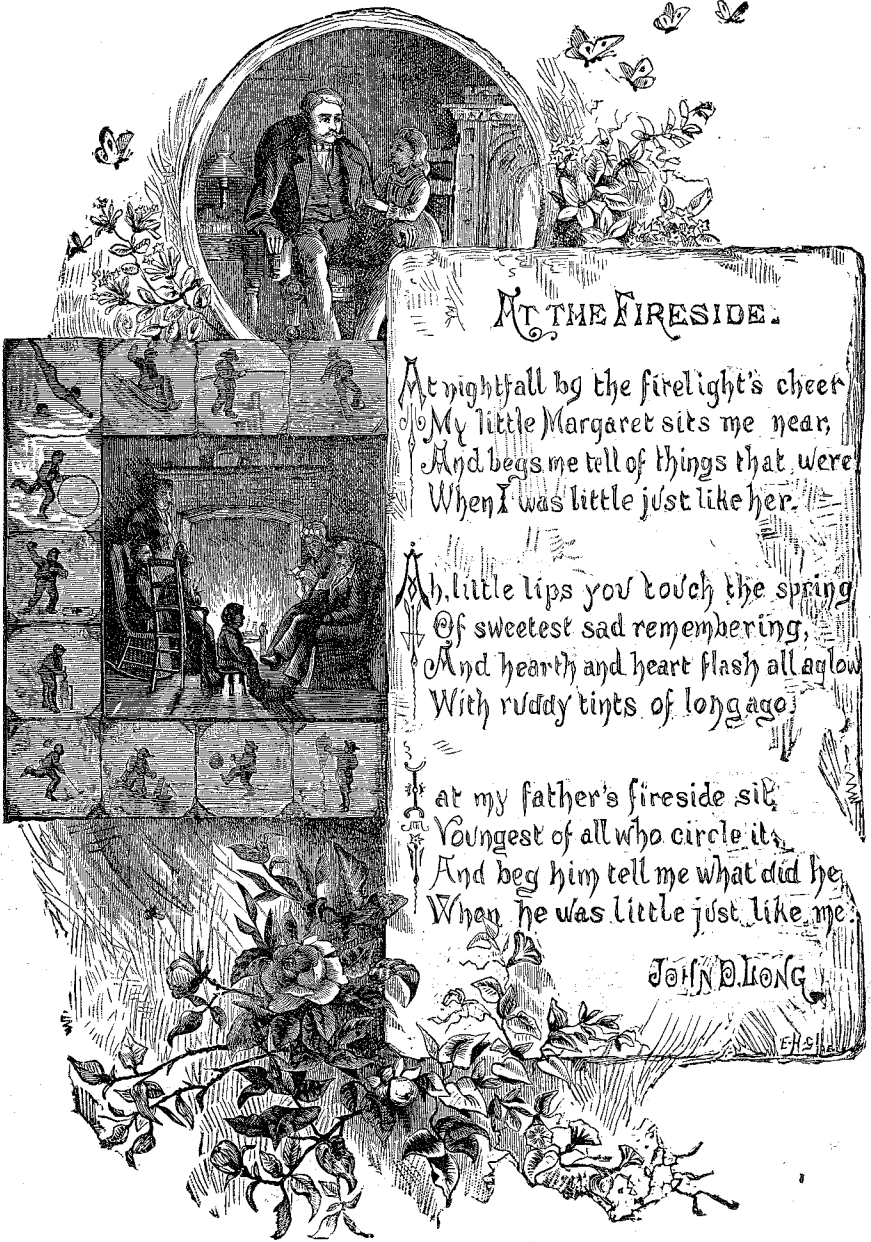 AT THE FIRESIDE.
At nightfall by the firelight's cheer
My little Margaret sits me near,
And begs me tell of things that were
When I was little just like her.
Ah, little lips you touch the spring
Of sweetest sad remembering,
And hearth and heart flash all aglow
With ruddy tints of long ago.
I at my father's fireside sit,
Youngest of all who circle it,
And beg him tell me what did he
When he was little just like me.
JOHN D. LONG